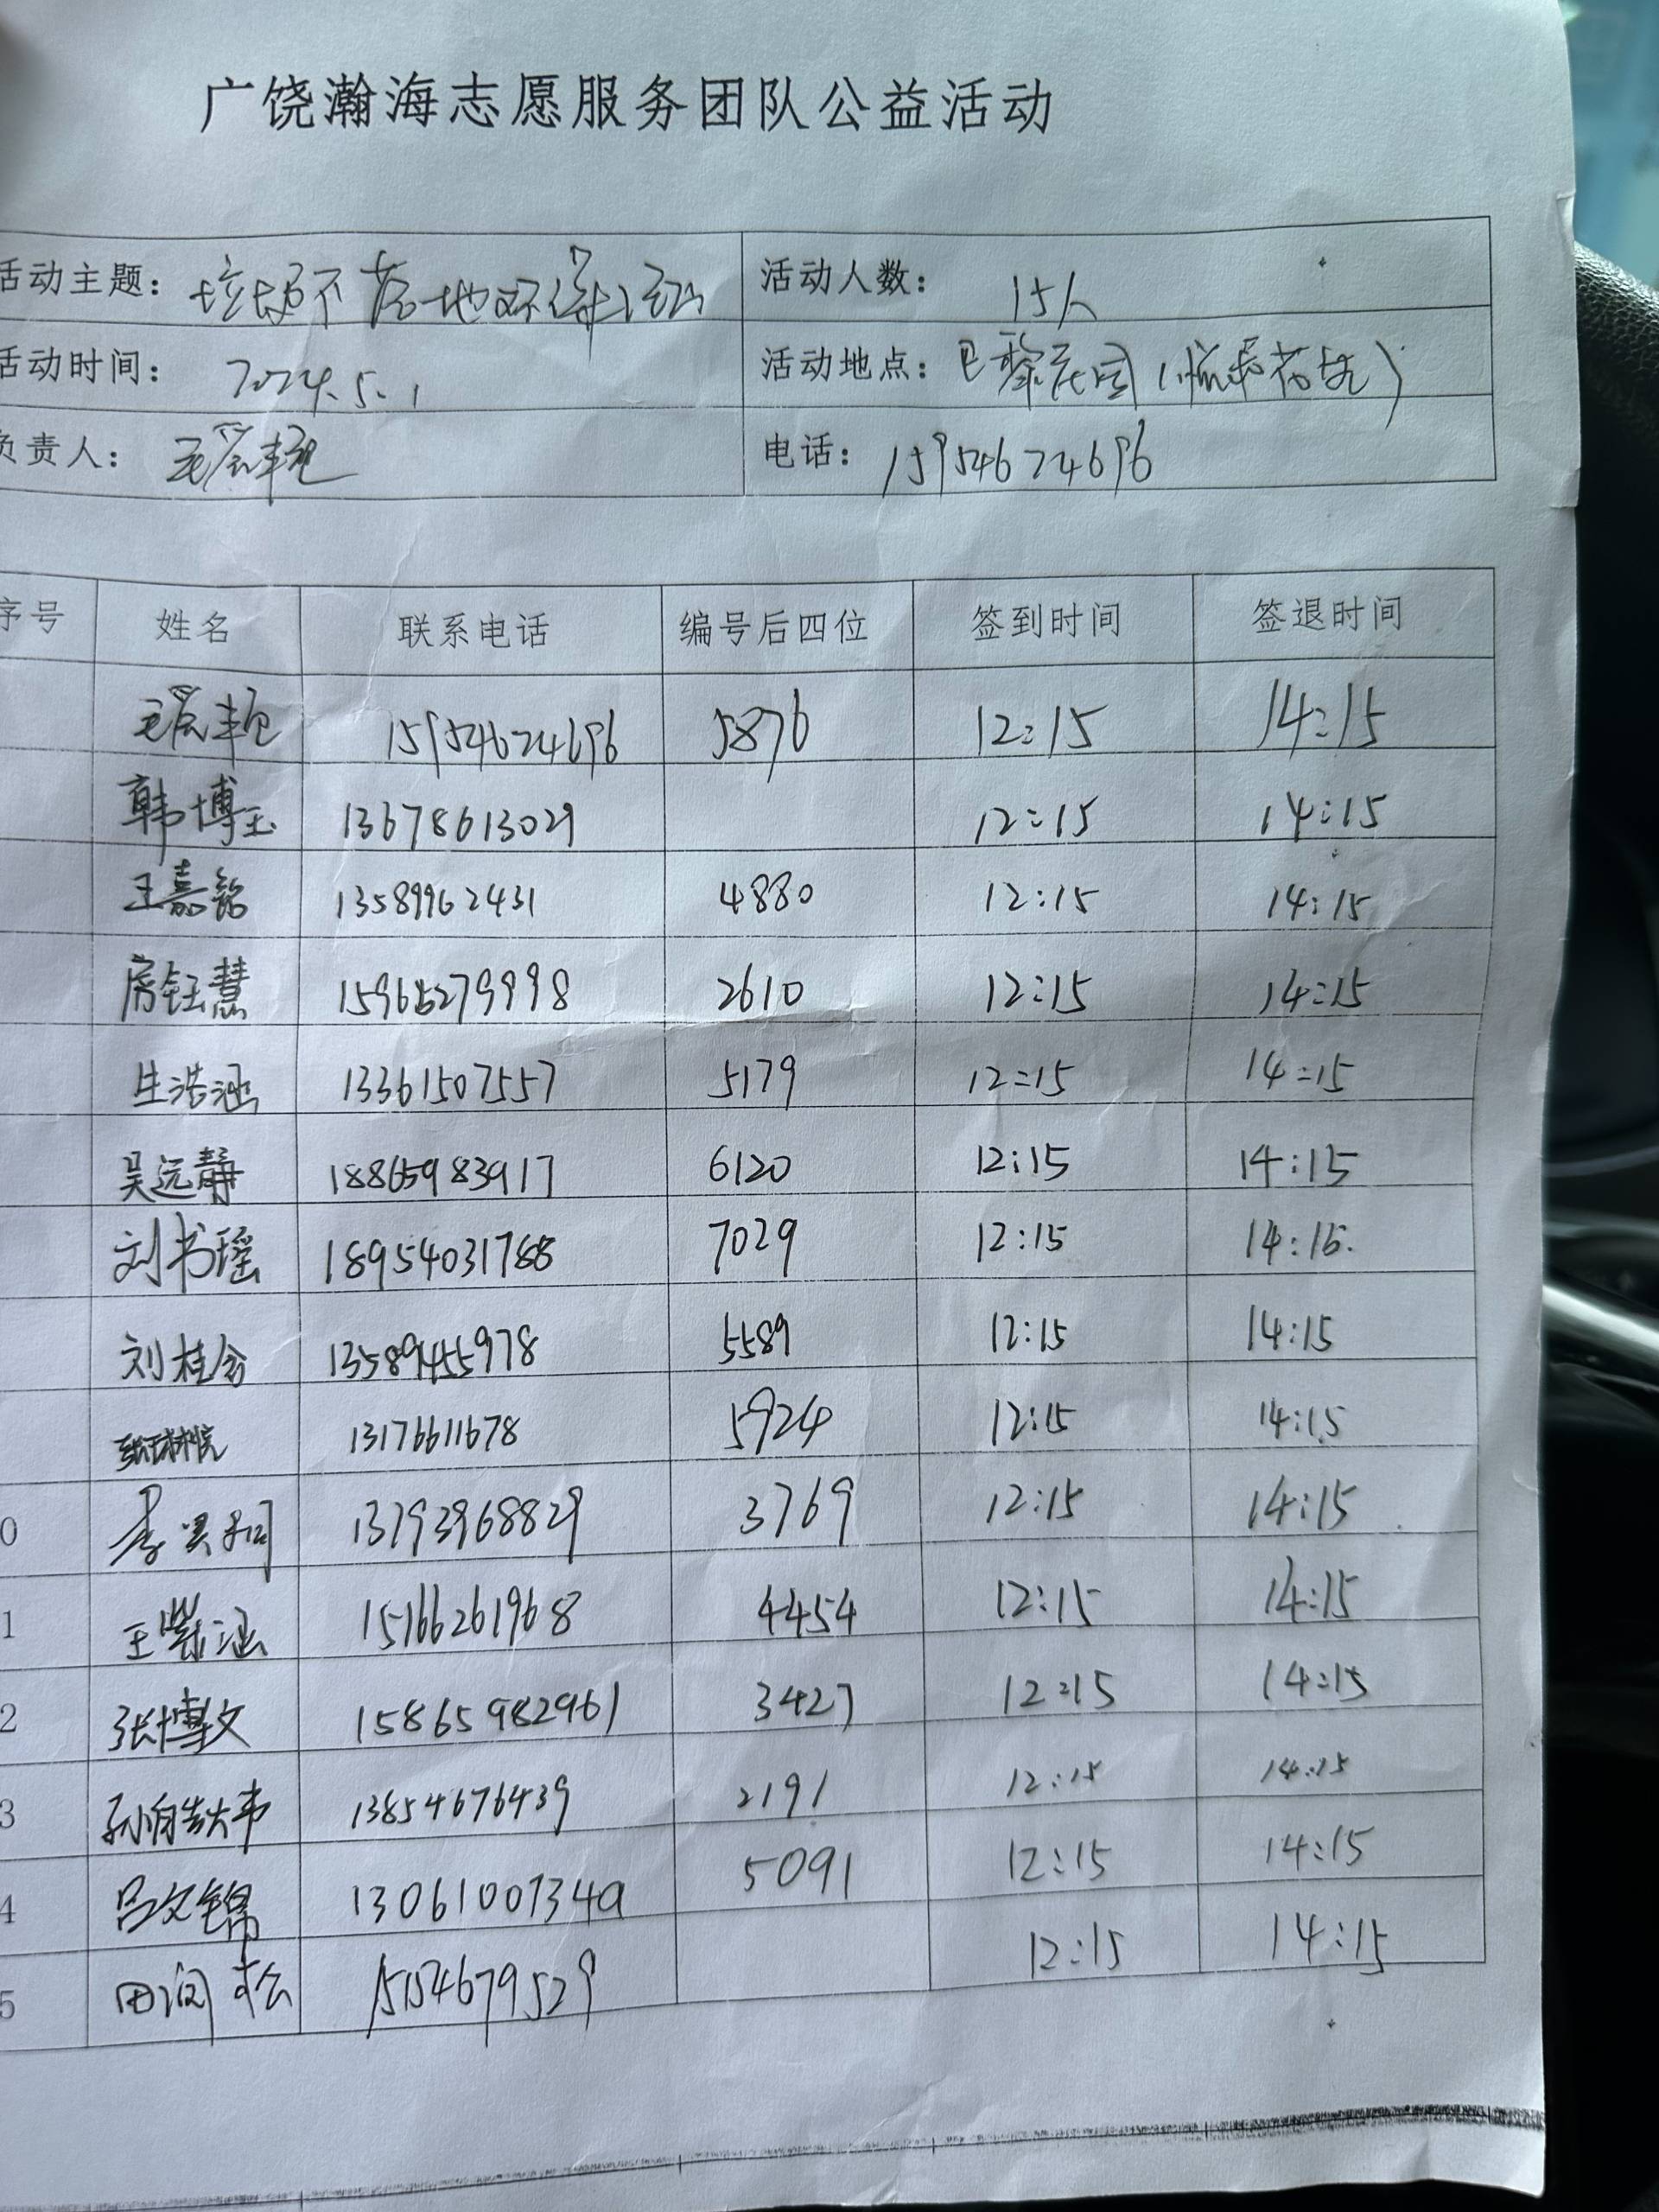 广饶瀚海志愿服务团队公益活动
活动主题： 垃圾不落地 活动人数： 15人
活动时间： 2024.5.1 活动地点： 巴黎花园
负责人： 电话： 15954674696
序号 姓名 联系电话 编号后四位 签到时间 签退时间
15954674696 5876 12:15 14:15
韩博玉 13678613029 12:15 14:15
王嘉铭 13589962431 4880 12:15 14:15
房钰慧 2610 12:15 14:15
生浩涵 13361507557 5179 12:15 14:15
吴远静 18865983917 6120 12:15 14:15
刘书瑶 18954031788 7029 12:15 14:16.
刘桂 13589455978 5589 12:15 14:15
13176611678 5924 12:15 14:15
0 李 13793968829 3769 12:15 14:15
1 王紫涵 15166261968 4454 12:15 14:15
2 张博文 15865982961 3427 12:15 14:15
3 13854676439 2191 12:15 14:15
4 吕文锦 13061007349 5091 12:15 14:15
5 田润 15154679529 12:15 14:15